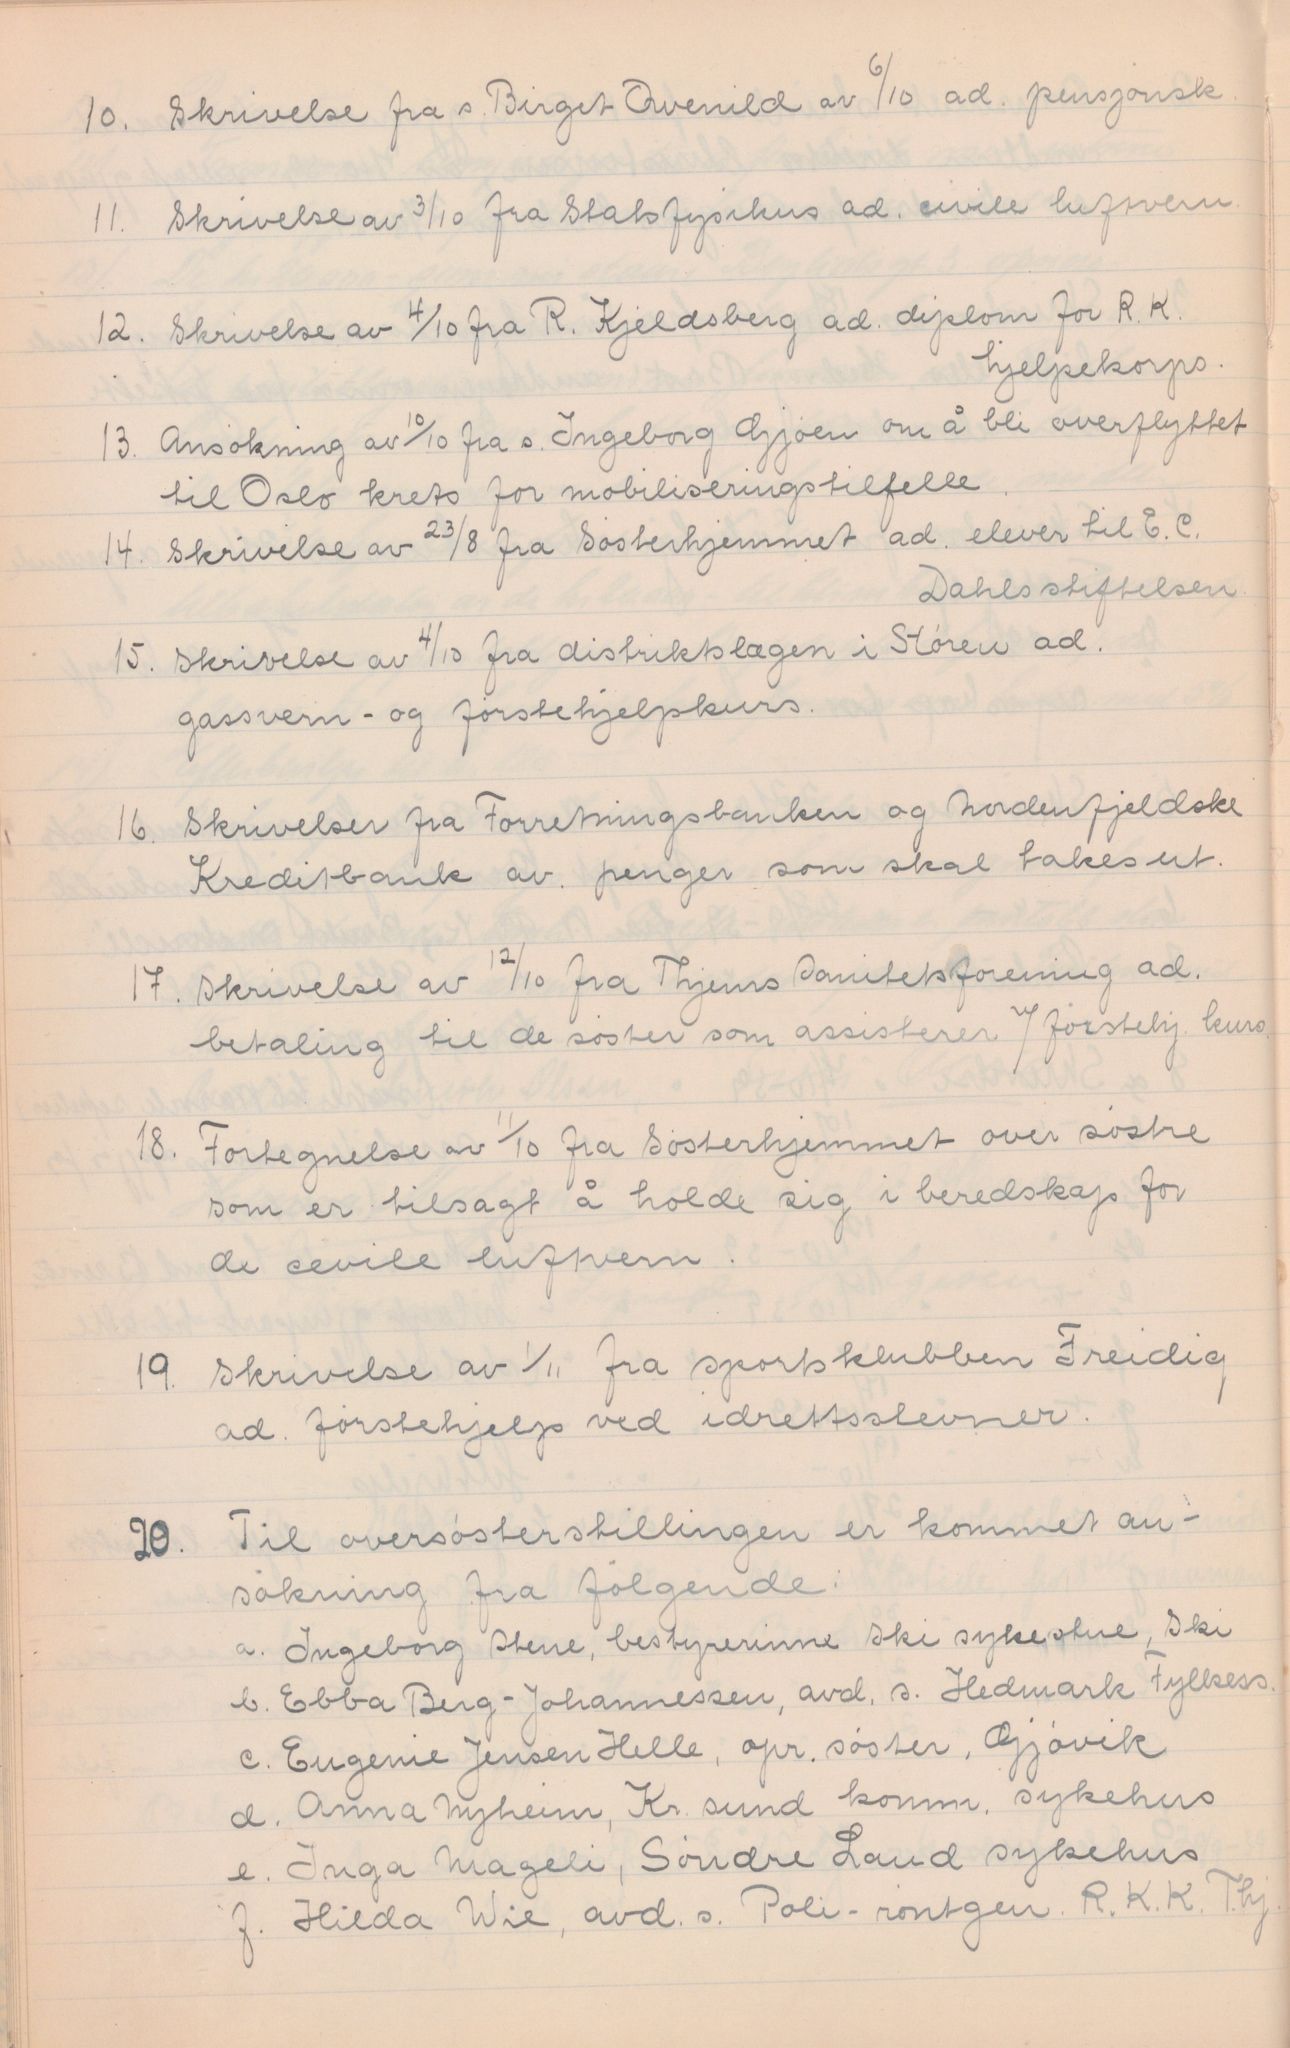 10. Skrivelse fra s. Birget Qvenild av 6/10 ad. pensjonsk.
11. Skrivelse av 3/10 fra Statsfysikus ad. civile luftvern.
12. Skrivelse av 4/10 fra R. Kjeldsberg ad. diplom for R.K.
hjelpekorps.
13. Ansøkning av 10/10 fra s. Ingeborg Gjøen om å bli overflyttet
til Oslo krets for mobiliseringstilfelle.
14. Skrivelse av 23/8 fra Søsterhjemmet ad. elever til E. C.
Dahlsstiftelsen
15. Skrivelse av 4/10 fra distriktslægen i Støren ad.
gassvern- og førstehjelpskurs.
16. Skrivelser fra Forretningsbanken og Nordenfjeldske
Kreditbank av. penger som skal takes ut.
17. Skrivelse av 12/10 fra Thjems Sanitetsforening ad.
betaling til de søster som assisterer v/ førstehj. kurs.
18. Fortegnelse av 11/10 fra Søsterhjemmet over søstre
som er tilsagt å holde sig i beredskap for
de cevile luftvern.
19. Skrivelse av 1/11 fra sportsklubben Freidig
ad. førstehjelp ved idrettsstevner.
20. Til oversøsterstillingen er kommet an-
søkning fra følgende:
a. Ingeborg Stene, bestyrerinne Ski sykestue, Ski
b. Ebba Berg-Johannessen, avd. s. Hedmark Fylkess.
c. Eugenie Jensen Helle, opr. søster, Gjøvik
d. Anna Nyheim, Kr. sund komm. sykehus
e. Inga Mageli, Søndre Land sykehus
f. Hilda Wie, avd. s. Poli-røntgen. R.K.K. Thj.